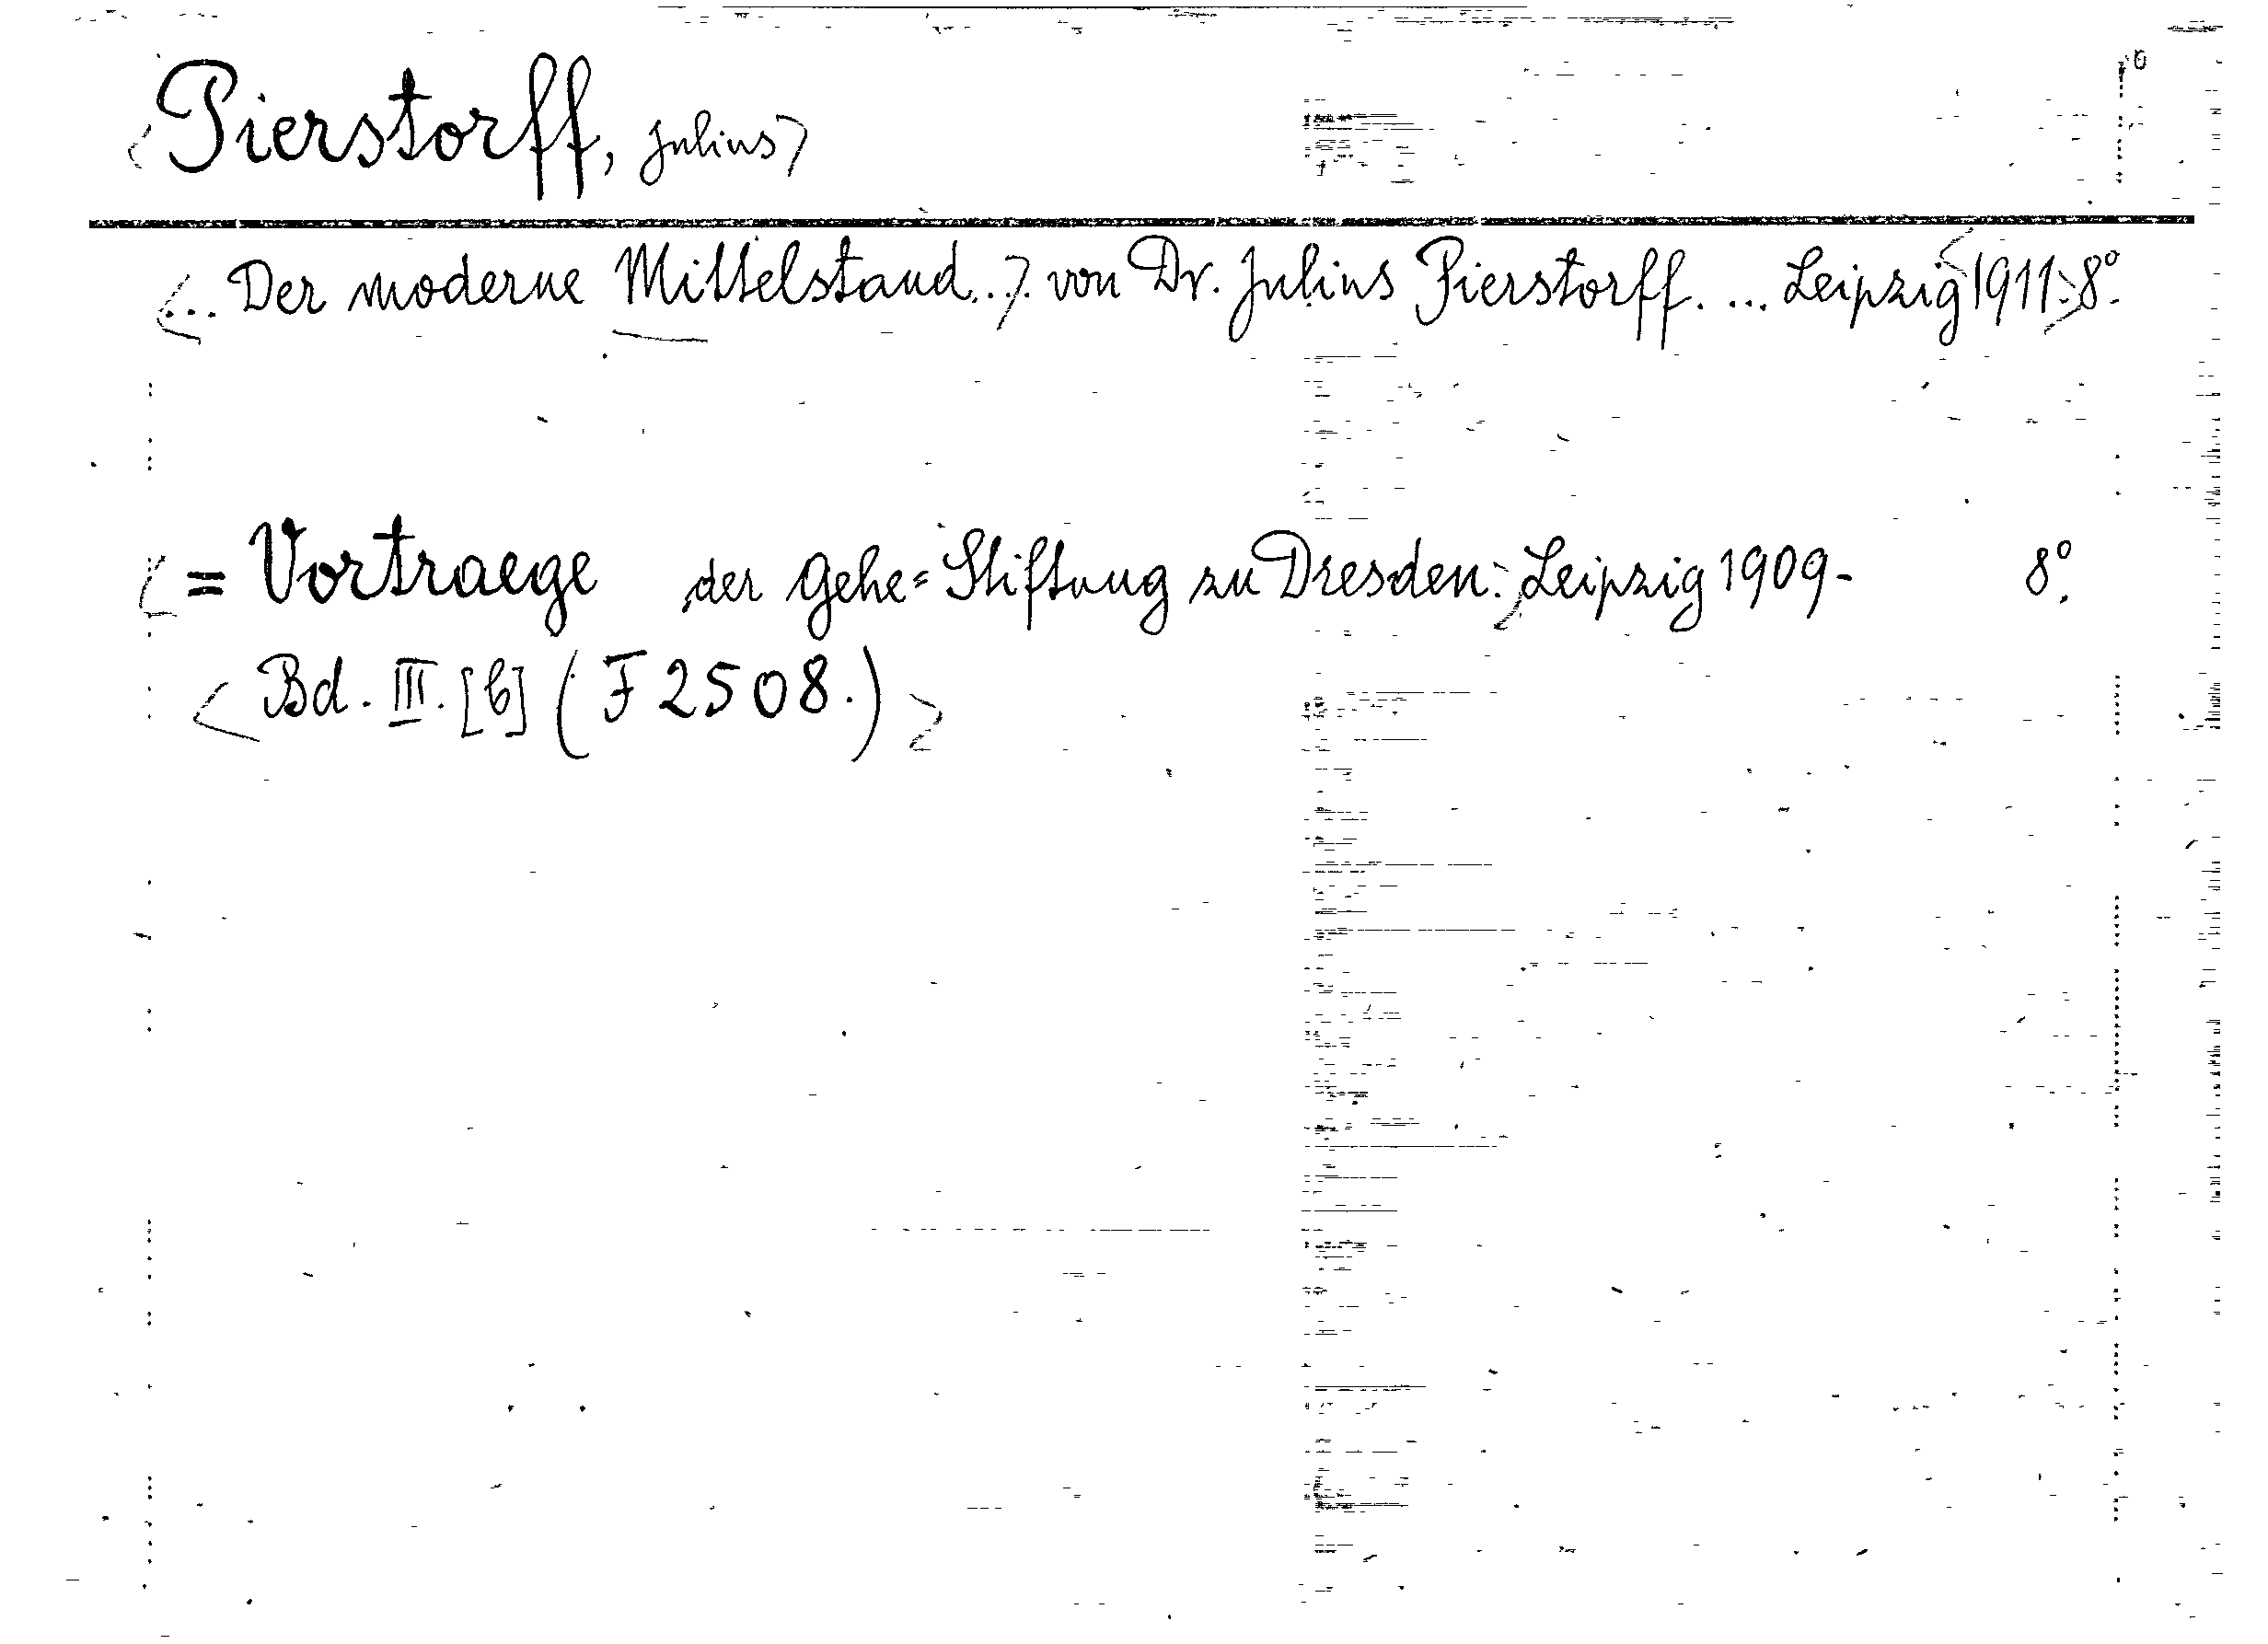 <Pierstorff, Julius>
<... Der moderne Mittelstand...> von Dr. Julius Pierstorff. ... Leipzig <1911.> 8°.
<= Vortraege der Gehe=Stiftung zu Dresden.> Leipzig 1909- 8°.
<Bd. III. [6] (F 2508.)>